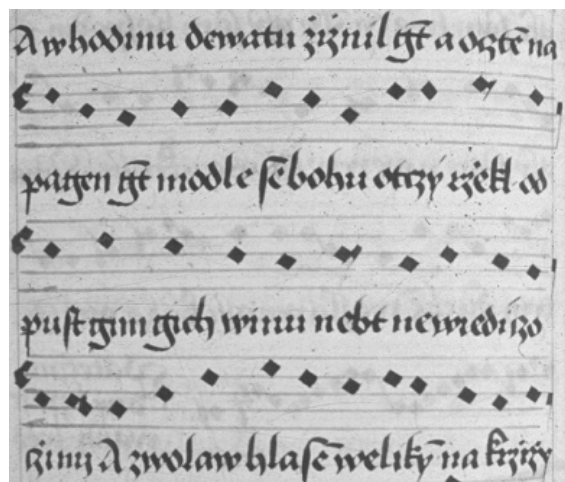 A w hodinu dewatu žiznil gt̄ a octē na
pagen gt̄ modle sē bohu otczy rzekl od
pust gim gich winu nebt newiedi czo
czinij A zwolaw hlasē welikȳ na krzizy